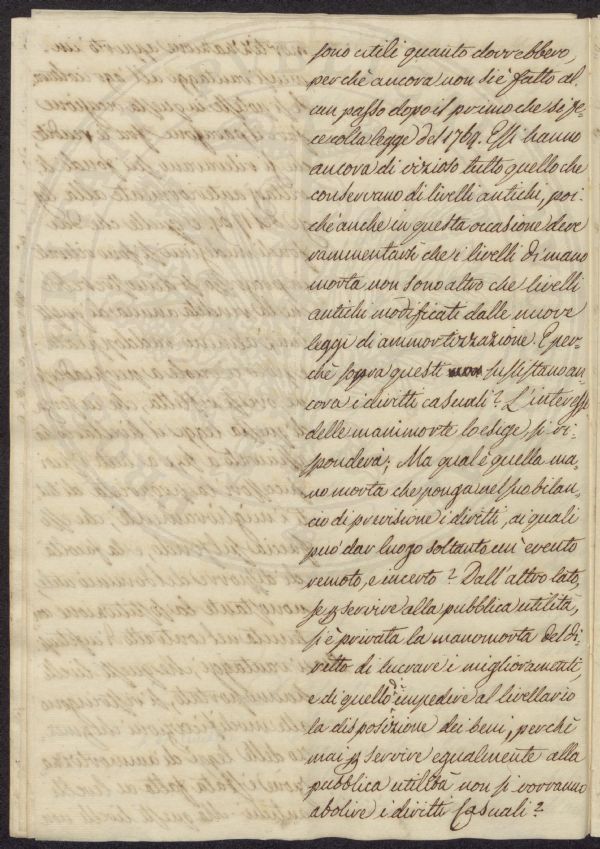 sono utili quanto dovrebbero,
perchè ancora non si è fatto al-
cun passo dopo il primo che si fe-
ce colla legge del 1769. Essi hanno
ancora di vizioso tutto quello che
conservano di livelli antichi, poi-
chè anche in questa occasione deve
rammentarsi che i livelli di mano
morta non sono altro che livelli
antichi modificati dalle nuove
leggi di ammortizzazione. E per-
chè sopra questi sussistano an-
cora i diritti casuali? L'interesse
delle manimorte lo esige, si ri-
sponderà; Ma qual è quella ma-
no morta che ponga nel suo bilan-
cio di previsione i diritti, ai quali
può dar luogo soltanto un' evento
remoto, e incerto? Dall'altro lato,
se p servire alla pubblica utilità,
si è privata la manomorta del di-
ritto di lucrare i miglioramenti,
e di quello d'impedire al livellario
la disposizione dei beni, perchè
mai p servire egualmente alla
pubblica utilità non si vorranno
abolire i diritti casuali?